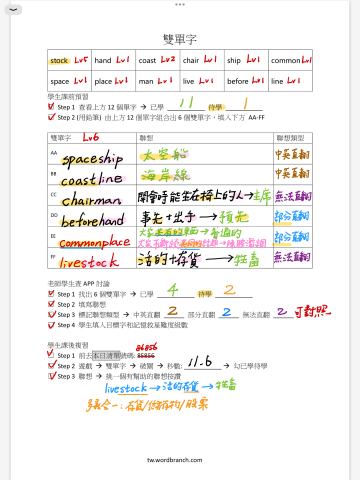 雙單字
stock Lv5 hand Lv1 coast Lv2 chair Lv1 ship Lv1 common Lv1
space Lv1 place Lv1 man Lv1 live Lv1 before Lv1 line Lv1
學生課前預習
Step 1 查看上方 12 個單字 → 已學 11 待學 1
Step 2 (用鉛筆) 由上方 12 個單字組合出 6 個雙單字，填入下方 AA-FF
雙單字 Lv6 聯想 聯想類型
AA spaceship 太空船 中英直翻
BB coastline 海岸線 中英直翻
CC chairman 開會時能坐在椅上的人→主席 無法直翻
DD beforehand 事先+出手→預先 部分直翻
EE commonplace 大家都有的東西→普通的 部分直翻
FF livestock 活的+存貨→牲畜 無法直翻
老師學生查 APP 討論
Step 1 找出 6 個雙單字 → 已學 4 待學 2
Step 2 填寫聯想
Step 3 標記聯想類型 → 中英直翻 2 部分直翻 2 無法直翻 2 可對照
Step 4 學生填入目標字和記憶救星難度級數
學生課後複習
86856
Step 1 前去本日清單號碼: 86856
Step 2 遊戲 → 雙單字 → 破關 → 秒數: 11.6 → 勾已學待學
Step 3 聯想 → 挑一個有幫助的聯想按讚
livestock→活的存貨→牲畜
多義合一:存貨/儲存物/股票
tw.wordbranch.com